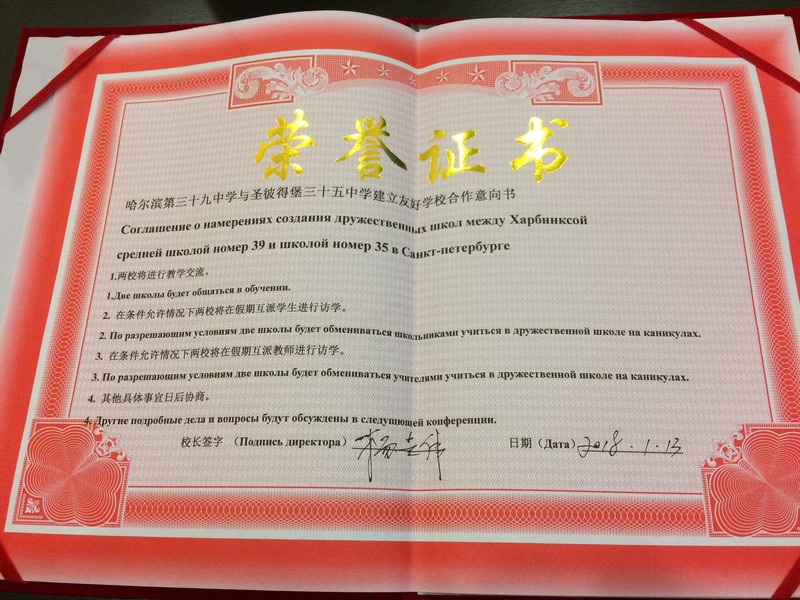 荣誉证书
哈尔滨第三十九中学与圣彼得堡三十五中学建立友好学校合作意向书
Соглашение о намерениях создания дружественных школ между Харбинксой
средней школой номер 39 и школой номер 35 в Санкт-петербурге
1.两校将进行教学交流。
1.Две школы будет общаться в обучении.
2. 在条件允许情况下两校将在假期互派学生进行访学。
2. По разрешающим условиям две школы будет обмениваться школьниками учиться в дружественной школе на каникулах.
3. 在条件允许情况下两校将在假期互派教师进行访学。
3. По разрешающим условиям две школы будет обмениваться учителями учиться в дружественной школе на каникулах.
4. 其他具体事宜日后协商。
4. Другие подробные дела и вопросы будут обсуждены в следующей конференции.
校长签字 （Подпись директора） 日期（Дата） 2018.1.13